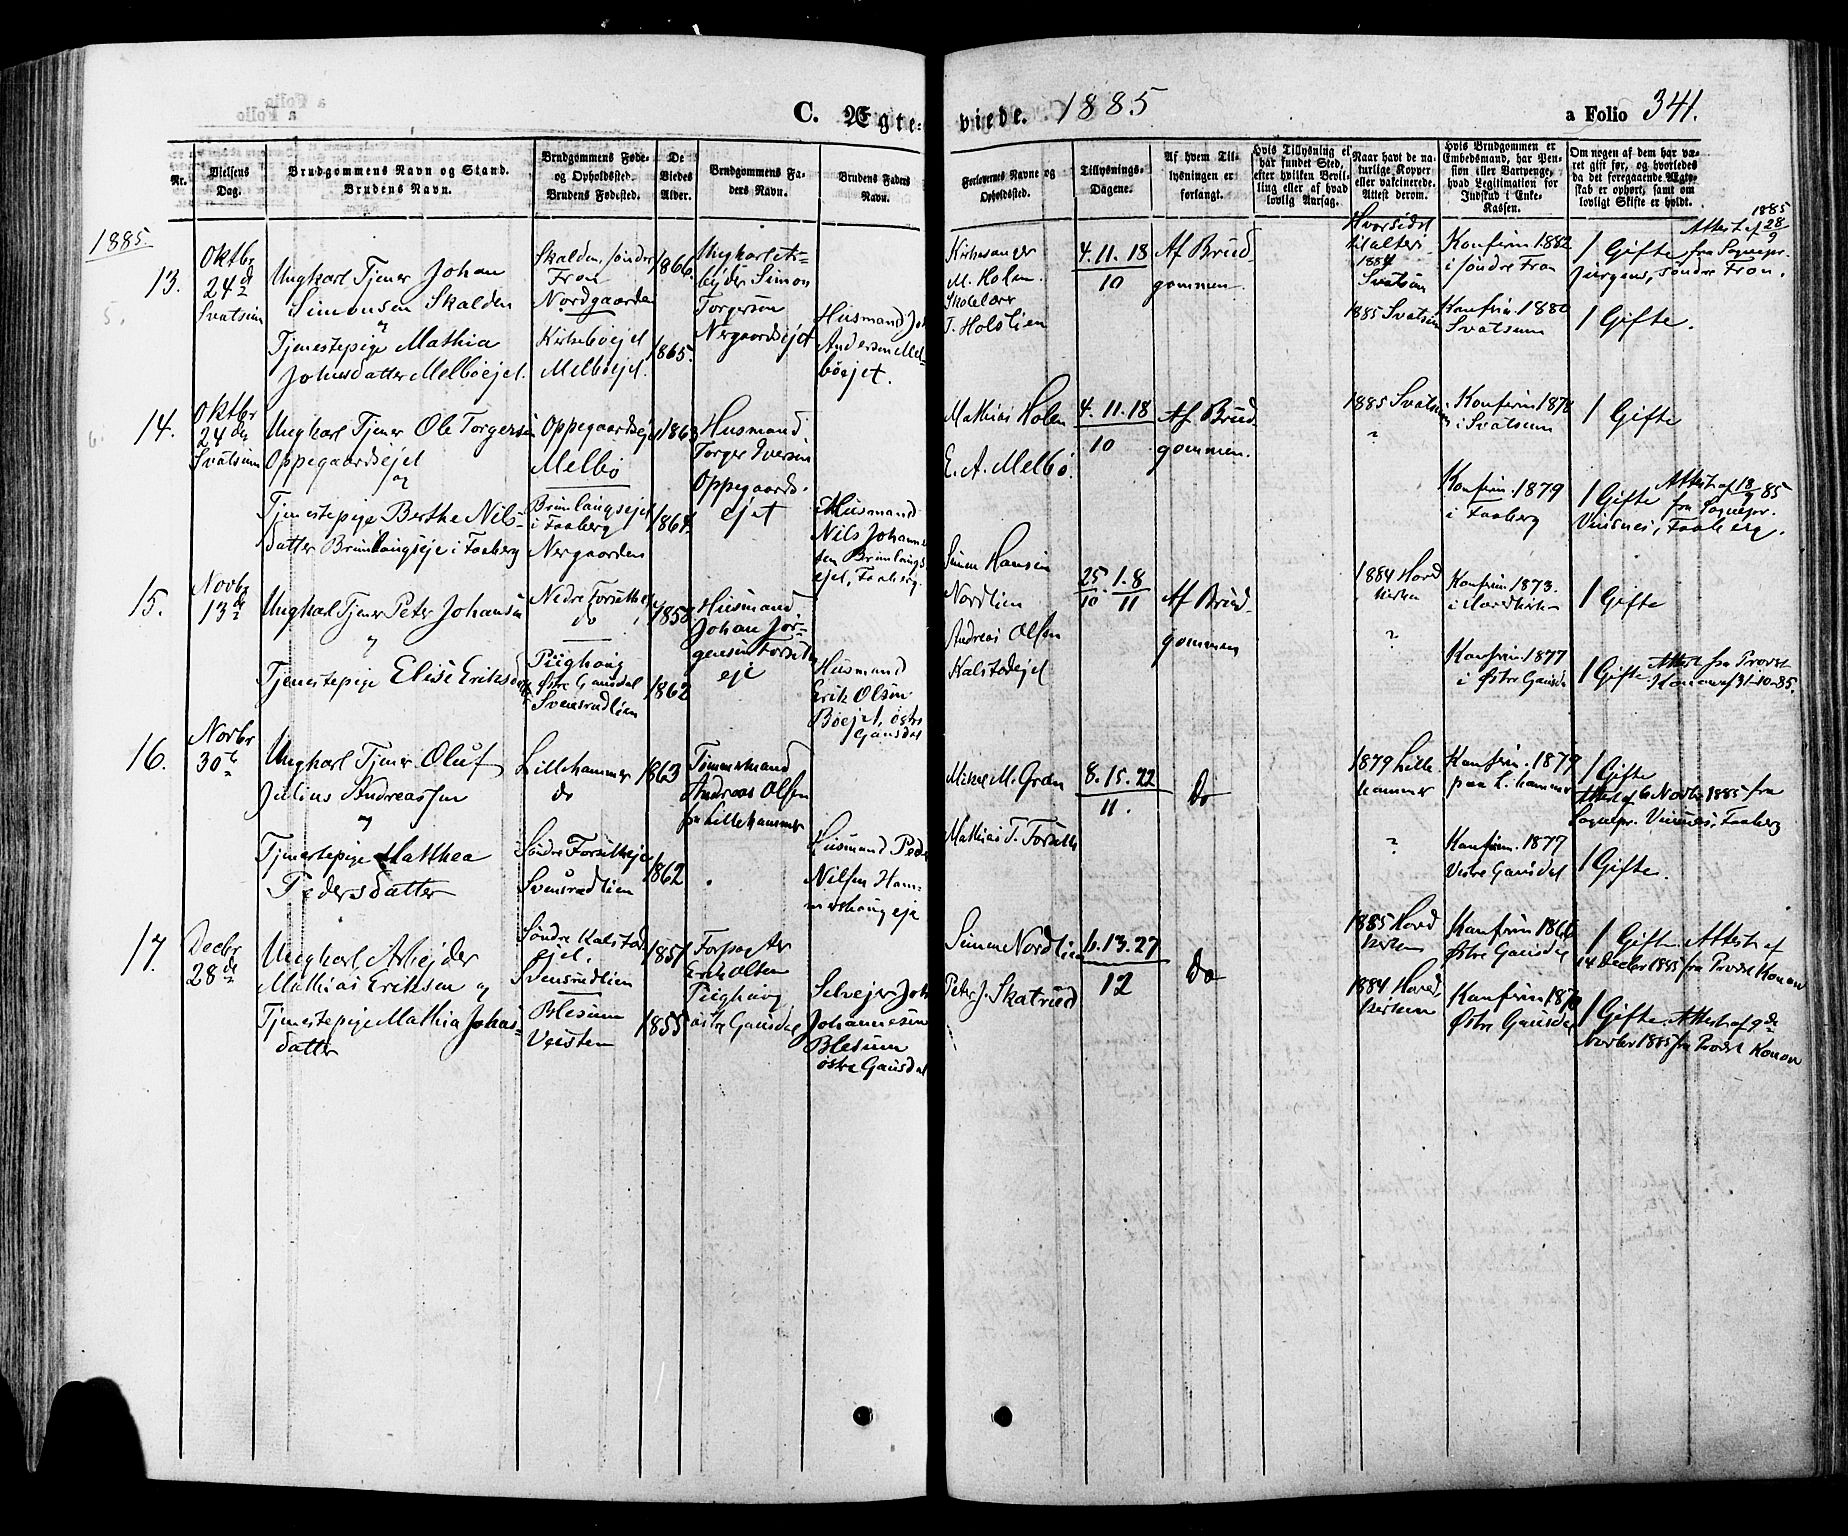 C. Ægte-
viede. 1885
a Folio 341.
Nr.
Vielsens Dag.
Brudgommens Navn og Stand.
Brudens Navn.
Brudgommens Føde-
og Opholdssted.
Brudens Fødested.
De
Viedes
Alder.
Brudgommens Fa-
ders Navn.
Brudens Faders
Navn.
Forlovernes Navne og
Opholdssted.
Tillysnings-
Dagene.
Af hvem Til-
lysningen er
forlangt.
Hvis Tillysning ei
har fundet Sted,
efter hvilken Bevil-
ling eller af hvad
lovlig Aarsag.
Naar havt de na-
turlige Kopper
eller vaccinerede.
Attest derom.
Hvis Brudgommen er
Embedsmand, har Pen-
sion eller Vartpenge,
hvad Legitimation for
Indskud i Enke-
Kassen.
Om nogen af dem har væ-
ret gift før, og hvorledes
da det foregaaende Ægte-
skab er ophørt, samt om
lovligt Skifte er holdt.
1885.
13.
Oktbr
24de
Svatsum
Ungkarl Tjener Johan
Simonsen Skalden
og
Tjenestepige Mathia
Johnsdatter Melbøejet.
Skalden, søndre
Fron
Nordgaarden
Kirkebøejet
Melbøejet.
1866
1865.
Simon
Torgersen
Nergaardsejet
Husmand Joh
Andersen Mel-
bøejet.
Kirkesanger
M. Holen.
Skolelærer
T. Holslien
4. 11. 18
10
Af Brud
gommen.
1884
Svatsum
1885 Svatsum
Konfirm 1882
i søndre Fron
Konfirm. 1880
Svatsum
1 Gifte
Attest af 28/9 1885
fra Sognepr.
Jürgens, søndre Fron.
1 Gifte.
14.
Oktbr
24de
Svatsum
Ungkarl Tjener Ole Torgersen
Oppegaardsejet
og
Tjenestepige Berthe Nils-
datter Brunlaugseje i Faaberg
Oppegaardsejet
Melbø
Brunlaugsejet
i Faaberg
Nergaarden
1863
1864.
Husmand
Torger Iversen
Oppegaards-
ejet
Husmand
Nils Johanne
sen Brunlaugs
ejet, Faaberg.
Mathias Holen
E. A. Melbø.
4. 11. 18
10
Af Brud
gommen.
1885 Svatsum
"
Konfirm 1878
i Svatsum
Konfirm. 1879
i Faaberg
1 Gifte
1 Gifte Attest af 18/9 85
fra Sognepr.
Vinsnes, Faaberg.
15.
Novbr
13de
Ungkarl Tjener Peter Johansen
"
Tjenestepige Elise Eriksd
Nedre Forsethej
do
Piighaug
Østre Gausdal
Svensrudlien
1858
1862
Husmand
Johan Jør-
gensen Forseth
eje
Husmand
Erik Olsen
Bøejet, østre
Gausdal
Simen Hansen
Nordlien
Andreas Olsen
Kalstadejet
25/10 . 1. 8/11
Af Brud-
gommen
1884 Nord
kirken
?
Konfirm. 1873.
i Nordkirken
Konfirm. 1877
i Østre Gausdal
1 Gifte
1 Gifte Attest fra Provst
Konow af 31-10-85.
16.
Novbr
30te
Ungkarl Tjener Oluf
Julius Andreassen
og
Tjenestepige Matthea
Pedersdatter
Lillehammer
do
Søndre Forsetheje
Svensrudlien
1863
1862
Tømmermand
Andreas Olsen
fra Lillehammer
Husmand Peder
Nilsen Ham-
mershaugeje
Mikkel M. Gran
Mathias T. Forseth
8. 15. 22
11.
Do
1879 Lille
hammer
?
Konfirm. 1879
paa L. hammer
Konfirm. 1877
Vestre Gausdal
1 Gifte
Attest af 6 Novbr 1885 fra
Sognepr. Vinsnes, Faaberg
1 Gifte.
17.
Decbr
28de
Ungkarl Arbejder
Mathias Eriksen og
Tjenestepige Mathia Johs-
datter
Søndre Kalstad
ejet.
Svensrudlien
Blesum
Veisten
1851
1855
Forpagter
Erik Olsen
Piighaug
østre Gausdal
Selvejer Joh
Johannesen
Blesum
østre Gausdal
Simen Nordlien
Peter J. Skatrud
6. 13. 27
12
Do
1885 Nord
kirken
1884 Nord
kirken
Konfirm 1866
Østre Gausdal
Konfirm. 1870
Østre Gausdal
1 Gifte. Attest af
14 Decbr 1885 fra Provst Konow
1 Gifte. Attest af 9de
Novbr 1885 fra Provst Konow